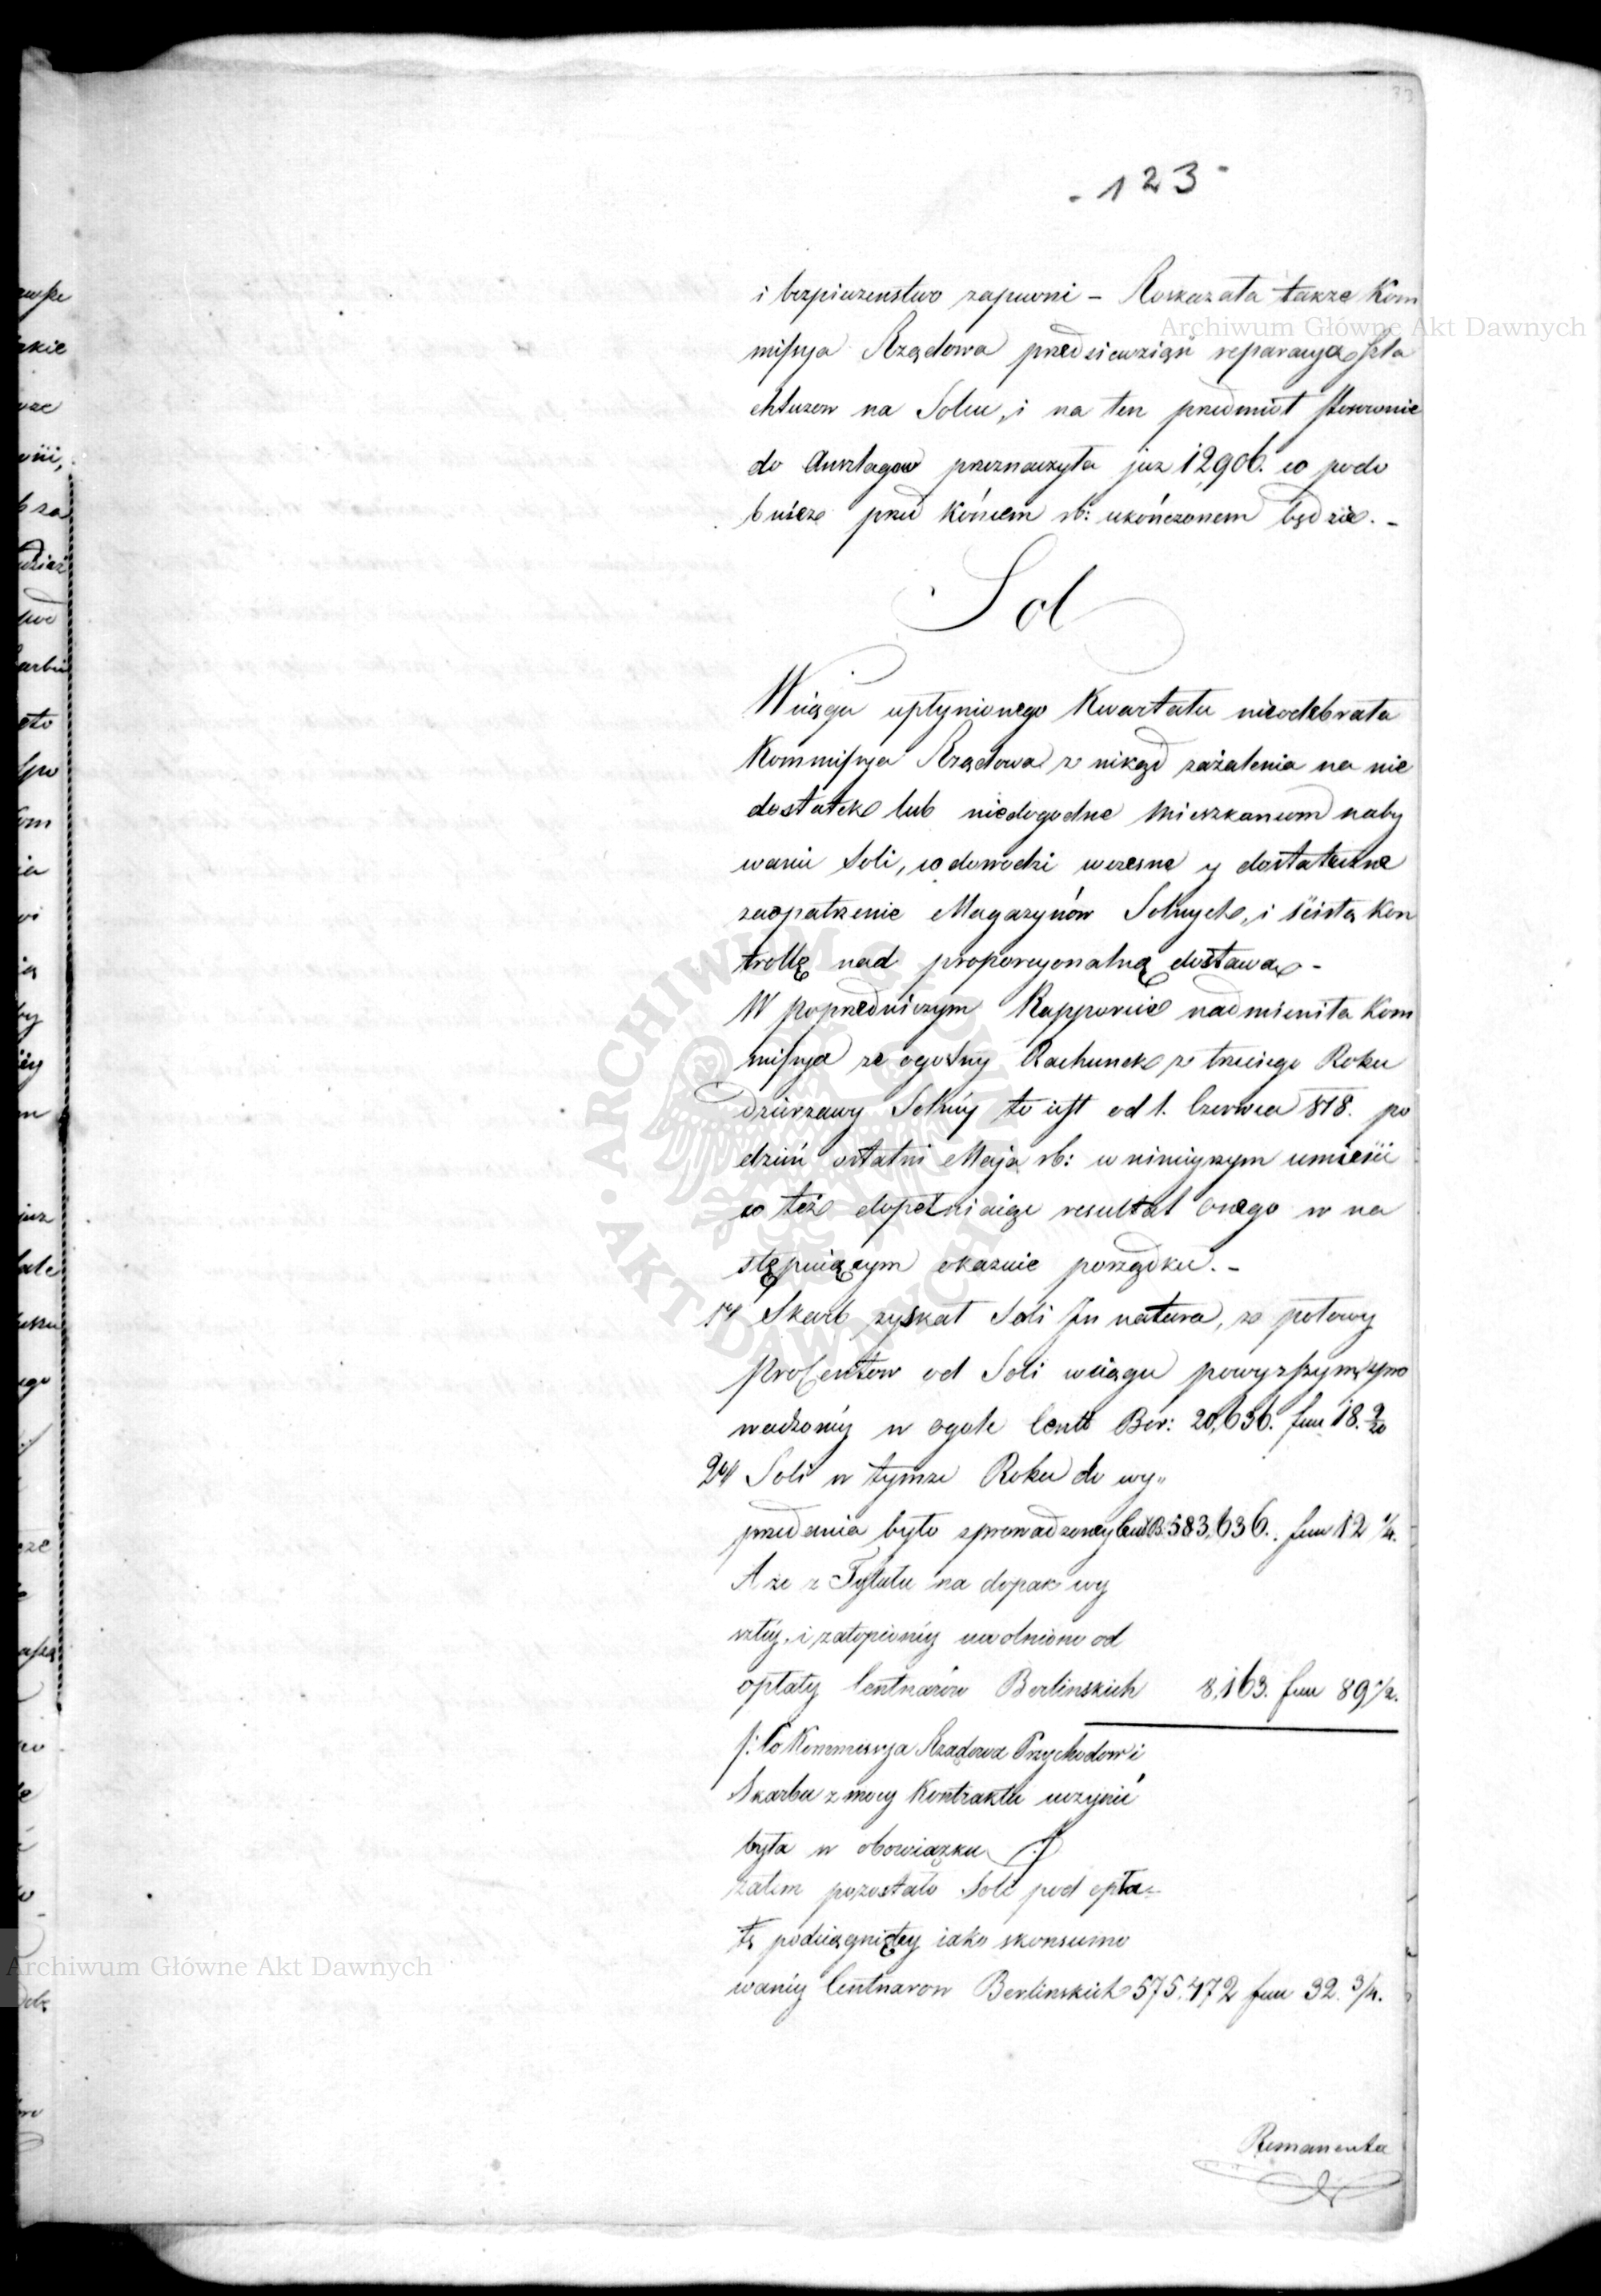 33
- 123 -
i bezpieczenstwo zapewni – Roskazała także Kom
missya Rządowa przedsiewziąść reparacyą Szla
chtuzow na Solcu, i na ten przedmiot stosownie
do Anszlagow przeznaczyła juz 12,906. co podo
bnież przed końcem rb: ukończonem będzie. –
Sol
W ciągu upłynionego Kwartału nieodebrała
Kommissya Rządowa z nikąd zażalenia na nie
dostatek lub niedogodne Mieszkancom naby
wanie Soli, co dowodzi wczesne y dostateczne
zaopatrzenie Magazynów Solnych, i ścisłą Kon
trollę nad proporcyonalną dostawą –
W poprzedniczym Rapporcie nadmieniła Kom
missya ze ogolny Rachunek z trzeciego Roku
dzierzawy Solney to iest od 1. Czerwca 818. po
dzień ostatni Maja rb: w ninieyszym umieści
co też dopełniaiąc resultat onego w na
stępuiącym okazuie porządku. –
1º/ Skarb zyskał Soli In natura, za połowy
Procentow od Soli wciągu powyzszym spro
wadzoney w ogole Centt Ber: 20,636. fun 18. 9/20
2º/ Soli w tymze Roku do wy„
przedania było sprowadzoney Cent B: 583,636. fun 12 1/4.
A ze z Tytułu na dopak wy
szłey, i zatopioney uwolniono od
opłaty Centnarów Berlinskich 8,163. fun 89 1/2.
/: Co Kommissya Rządowa Przychodow i
Skarbu z mocy Kontraktu uczynić
była w obowiązku :/
zatem pozostało Soli pod opła-
tę podciągniętey iako skonsumo
waney Centnarow Berlinskich 575,472 fun 32. 3/4.
Remanenta
Archiwum Główne Akt Dawnych
Archiwum Główne Akt Dawnych